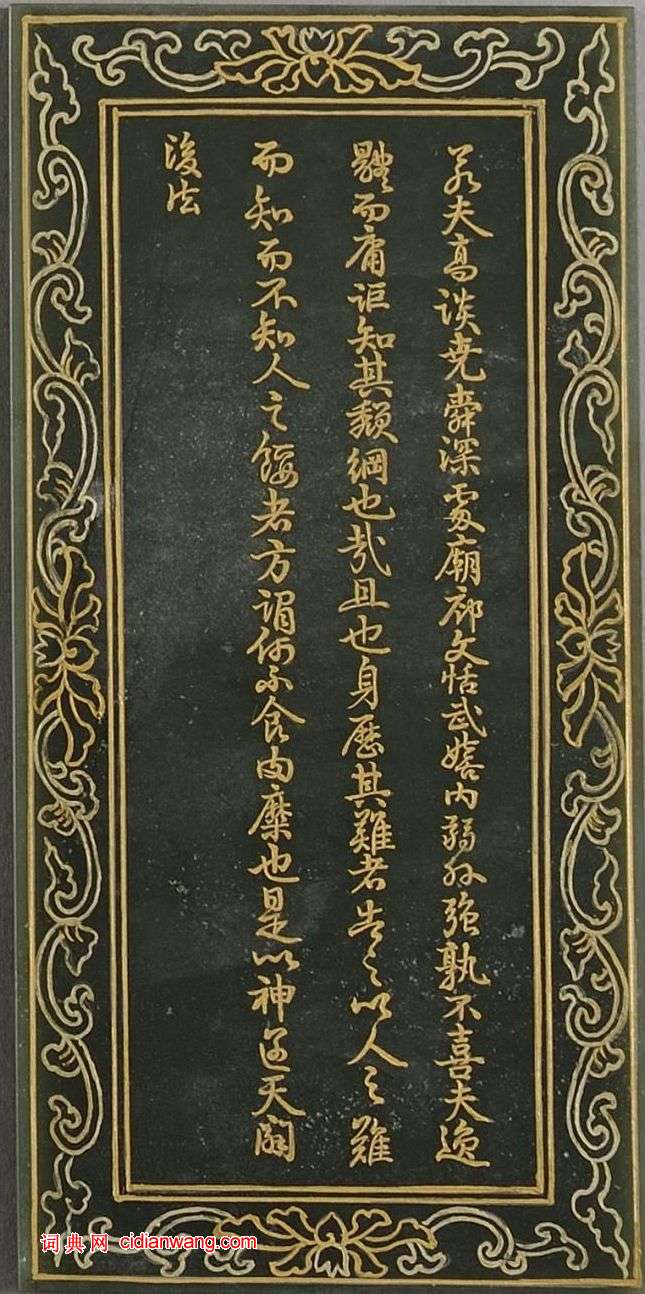 若夫高談堯舜深處廟廊文恬武嬉内弱外強孰不喜夫逸
體而庸詎知其頹綱也哉且也身歷其難者告之以人之難
而知而不知人之餒者方謂何不食肉糜也是以神運天
後法
词典网 cidianwang.com